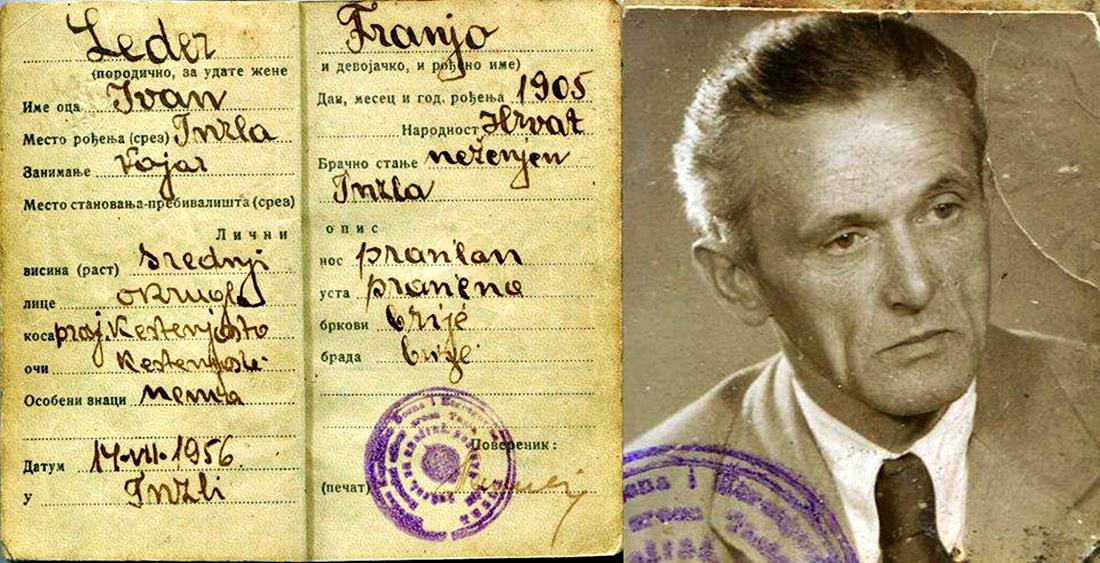 Leder
(породично, за удате жене
Име оца Ivan
Место рођења (срез) Tuzla
Занимање
Место становања-пребивалишта (срез)
Лични
висина (раст) srednji
лице okruglo
коса kestenjasta
очи kestenjaste
Особени знаци nema
Датум 1956.
у Tuzli
Franjo
и девојачко, и рођено име)
Дан, месец и год. рођења 1905
Народност Hrvat
Брачно стање neženjen
Tuzla
опис
нос pravilan
уста pravilna
бркови brije
брада brije
Повереник:
(печат)